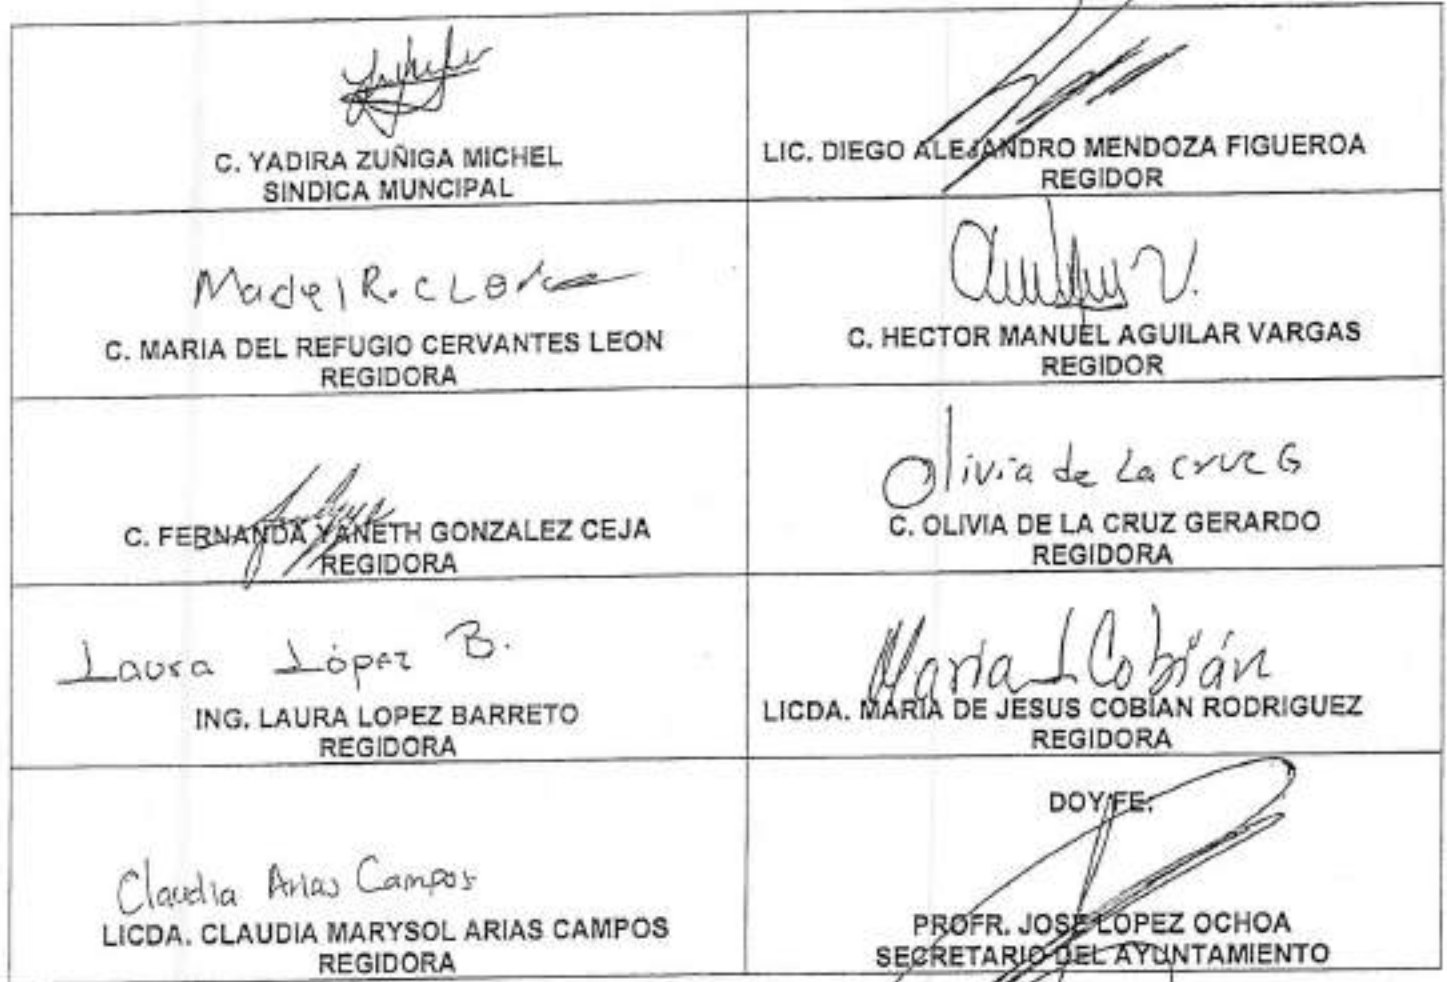 C. YADIRA ZUÑIGA MICHEL
SINDICA MUNCIPAL
LIC. DIEGO ALEJANDRO MENDOZA FIGUEROA
REGIDOR
C. MARIA DEL REFUGIO CERVANTES LEON
REGIDORA
C. HECTOR MANUEL AGUILAR VARGAS
REGIDOR
C. FERNANDA YANETH GONZALEZ CEJA
REGIDORA
Olivia de La cruz G
C. OLIVIA DE LA CRUZ GERARDO
REGIDORA
Laura López B.
ING. LAURA LOPEZ BARRETO
REGIDORA
María J Cobián
LICDA. MARIA DE JESUS COBIAN RODRIGUEZ
REGIDORA
Claudia Arias Campos
LICDA. CLAUDIA MARYSOL ARIAS CAMPOS
REGIDORA
DOY FE.
PROFR. JOSE LOPEZ OCHOA
SECRETARIO DEL AYUNTAMIENTO